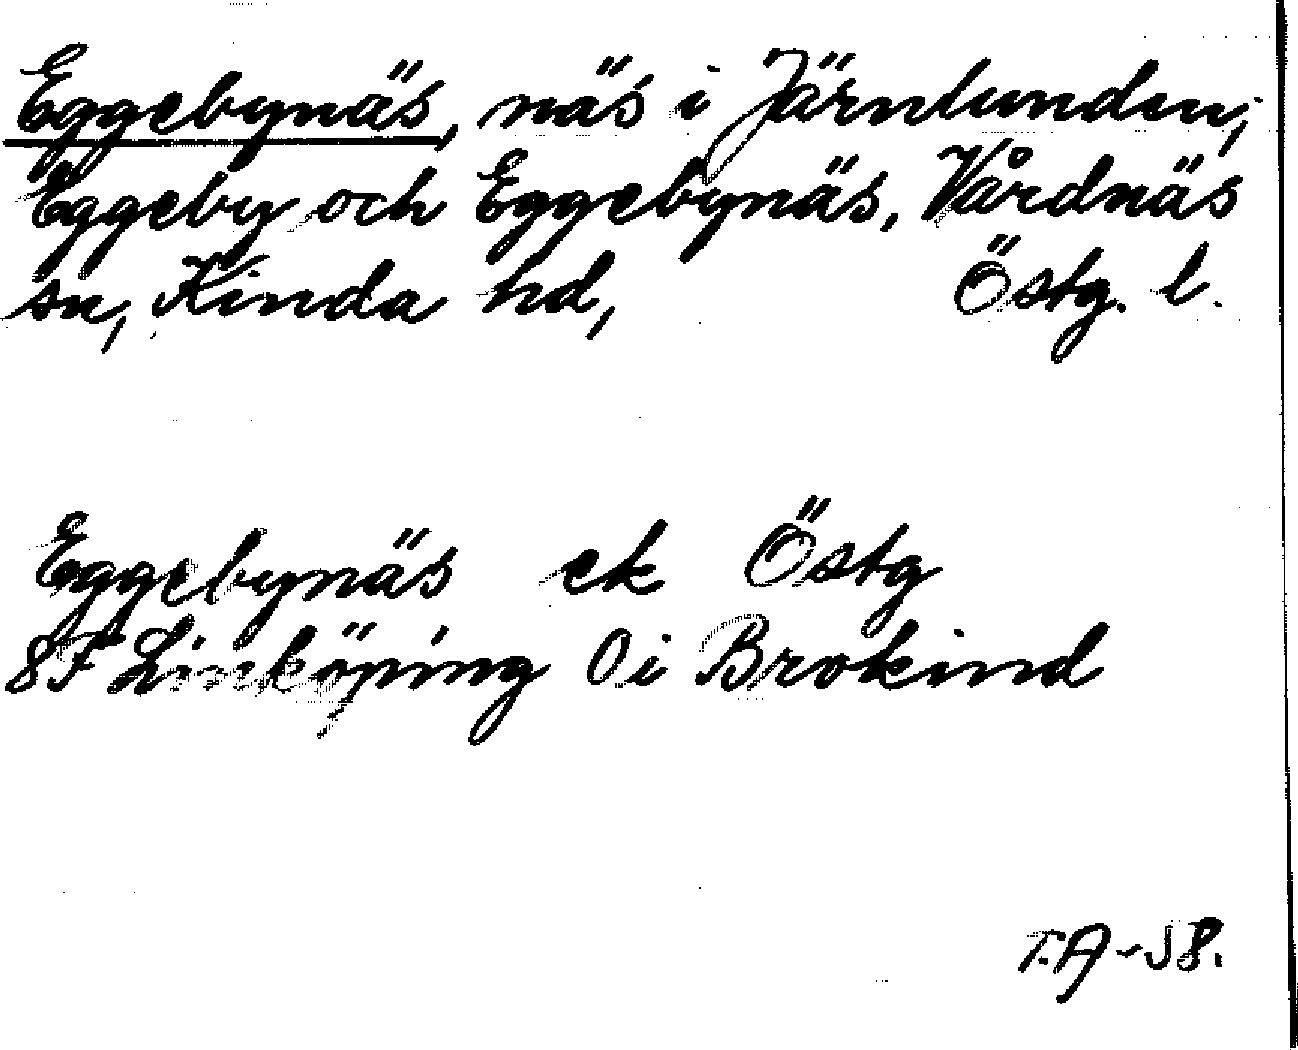 Eggebynäs, näs i Järnlunden;
Eggeby och Eggebynäs, Vårdnäs
sn, Kinda hd, Östg. l.
Eggebynäs ek Östg
8F Linköping 0i Brokind
T.A-58.